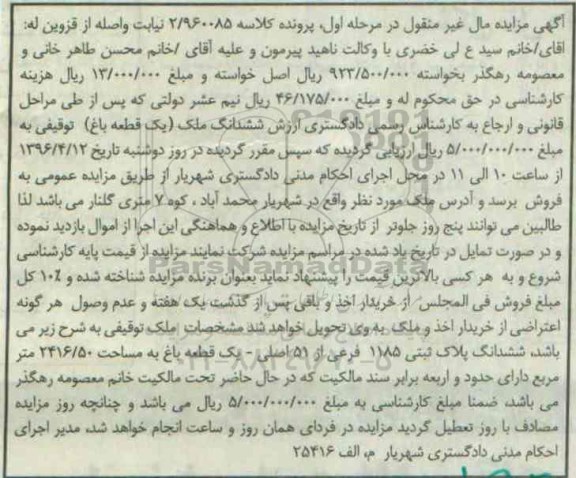 آگهی مزایده مال غیر منقول در مرحله اول، پرونده کلاسه ۲/۹۶۰۰۸۵ نیابت واصله از قزوین له:
اقای/خانم سید ع لی خضری با وکالت ناهید پیرمون و علیه آقای /خانم محسن طاهر خانی و
معصومه رهگذر بخواسته ۹۲۳/۵۰۰/۰۰۰ ریال اصل خواسته و مبلغ ۱۳/۰۰۰/۰۰۰ ریال هزینه
کارشناسی در حق محکوم له و مبلغ ۴۶/۱۷۵/۰۰۰ ریال نیم عشر دولتی که پس از طی مراحل
قانونی و ارجاع به کارشناس رسمی دادگستری ارزش ششدانگ ملک (یک قطعه باغ) توقیفی به
مبلغ ۵/۰۰۰/۰۰۰/۰۰۰ ریال ارزیابی گردیده که سپس مقرر گردیده در روز دوشنبه تاریخ ۱۳۹۶/۴/۱۲
از ساعت ۱۰ الی ۱۱ در محل اجرای احکام مدنی دادگستری شهریار از طریق مزایده عمومی به
فروش برسد و آدرس ملک مورد نظر واقع در شهریار محمد آباد ، کوه ۷ متری گلنار می باشد لذا
طالبین می توانند پنج روز جلوتر از تاریخ مزایده با اطلاع و هماهنگی این اجرا از اموال بازدید نموده
و در صورت تمایل در تاریخ یاد شده در مراسم مزایده شرکت نمایند مزایده از قیمت پایه کارشناسی
شروع و به هر کسی بالاترین قیمت را پیشنهاد نماید بعنوان برنده مزایده شناخته شده و ۱۰٪ کل
مبلغ فروش فی المجلس از خریدار اخذ و باقی پس از گذشت یک هفته و عدم وصول هر گونه
اعتراضی از خریدار اخذ و ملک به وی تحویل خواهد شد مشخصات ملک توقیفی به شرح زیر می
باشد، ششدانگ پلاک ثبتی ۱۱۸۵ فرعی از ۵۱ اصلی - یک قطعه باغ به مساحت ۲۴۱۶/۵۰ متر
مربع دارای حدود و اربعه برابر سند مالکیت که در حال حاضر تحت مالکیت خانم معصومه رهگذر
می باشد، ضمنا مبلغ کارشناسی به مبلغ ۵/۰۰۰/۰۰۰/۰۰۰ ریال می باشد و چنانچه روز مزایده
مصادف با روز تعطیل گردید مزایده در فردای همان روز و ساعت انجام خواهد شد، مدیر اجرای
احکام مدنی دادگستری شهریار م، الف ۲۵۴۱۶
ParsNamadData